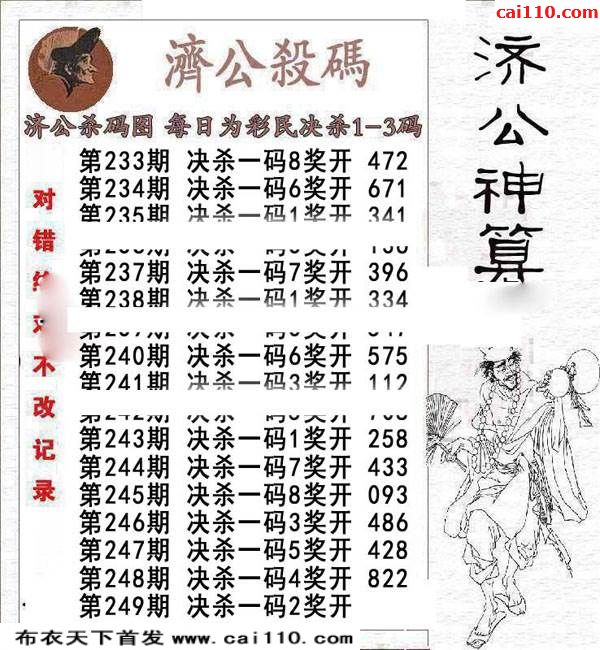 cai110.com
濟公殺碼
济公神算
济公杀码图 每日为彩民决杀1-3码
对错 不改记录
第233期 决杀一码8奖开 472
第234期 决杀一码6奖开 671
第235期 决杀一码1奖开 341
第237期 决杀一码7奖开 396
第238期 决杀一码1奖开 334
第240期 决杀一码6奖开 575
第241期 决杀一码3奖开 112
第243期 决杀一码1奖开 258
第244期 决杀一码7奖开 433
第245期 决杀一码8奖开 093
第246期 决杀一码3奖开 486
第247期 决杀一码5奖开 428
第248期 决杀一码4奖开 822
第249期 决杀一码2奖开
布衣天下首发 www.cai110.com